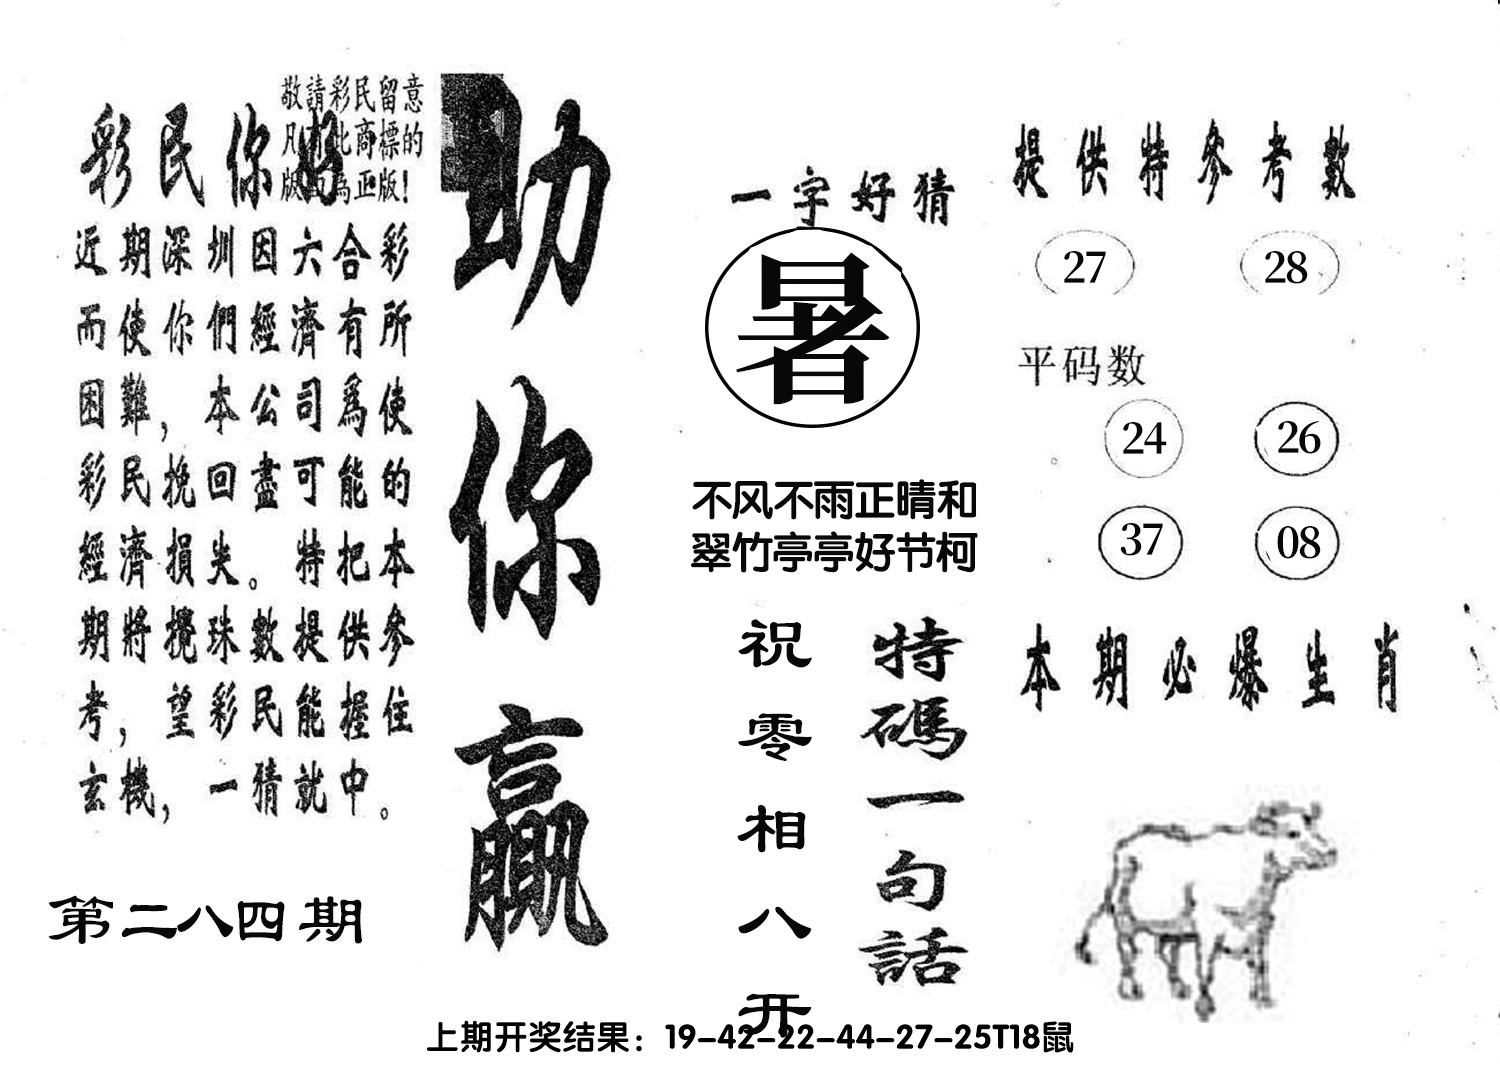 敬請彩民留意
凡有此商標的
版面為正版！
彩民你好
近期深圳因六合彩
而使你們經濟有所
困難，本公司爲使
彩民挽回盡可能的
經濟損失。特把本
期將攪珠數提供參
考，望彩民能握住
玄機，一猜就中。
第二八四期
助你贏
一字好猜
暑
不风不雨正晴和
翠竹亭亭好节柯
特碼一句話
祝零相八开
提供特參考數
27 28
平码数
24 26
37 08
本期必爆生肖
上期开奖结果：19-42-22-44-27-25T18鼠